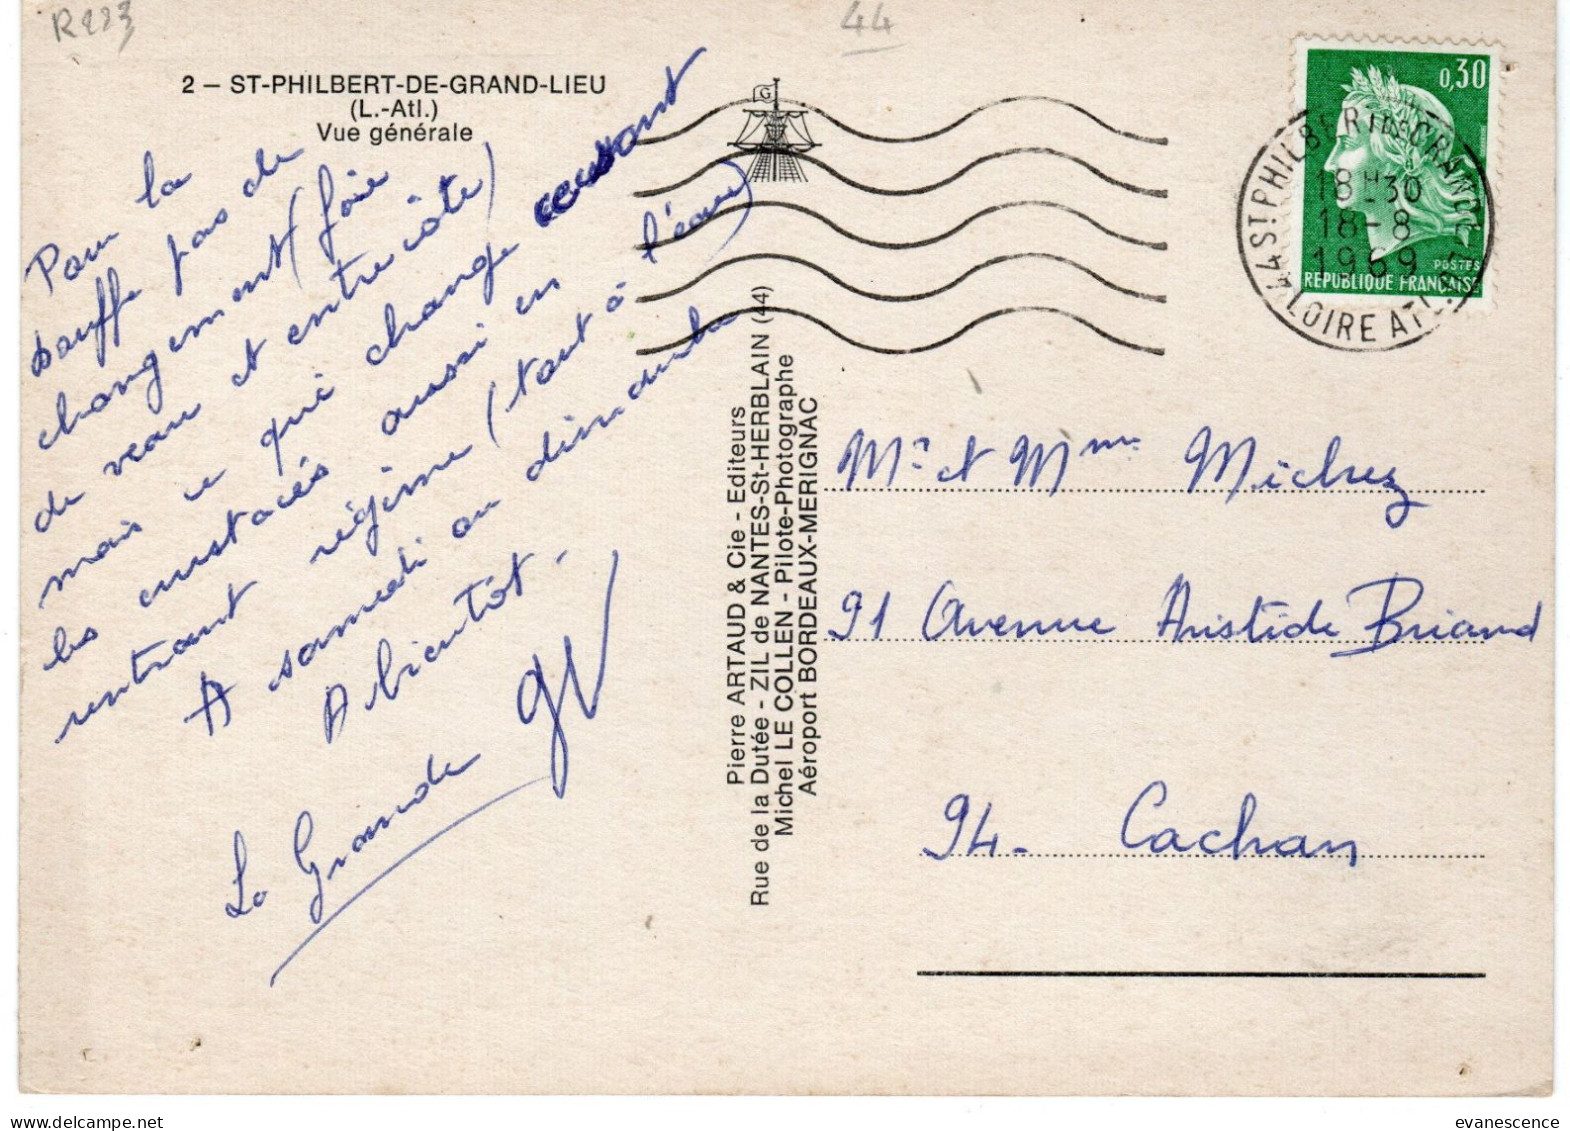 R223
44
2 – ST-PHILBERT-DE-GRAND-LIEU
(L.-Atl.)
Vue générale
Pour la
bouffe pas de
changement (foie
de veau et entrecôte)
mais ce qui change
les crustacés aussi en
rentrant régime (tout à l'eau)
A samedi ou dimanche
A bientôt -
La Grande
Pierre ARTAUD & Cie - Editeurs
Rue de la Dutée - ZIL de NANTES-St-HERBLAIN (44)
Michel LE COLLEN - Pilote-Photographe
Aéroport BORDEAUX-MERIGNAC
G
0,30
POSTES
REPUBLIQUE FRANÇAISE
44 ST PHILBERT DE GRAND
18 H 30
18-8
1969
LOIRE ATL
Mr et Mme Michez
91 Avenue Aristide Briand
94- Cachan
evanescence